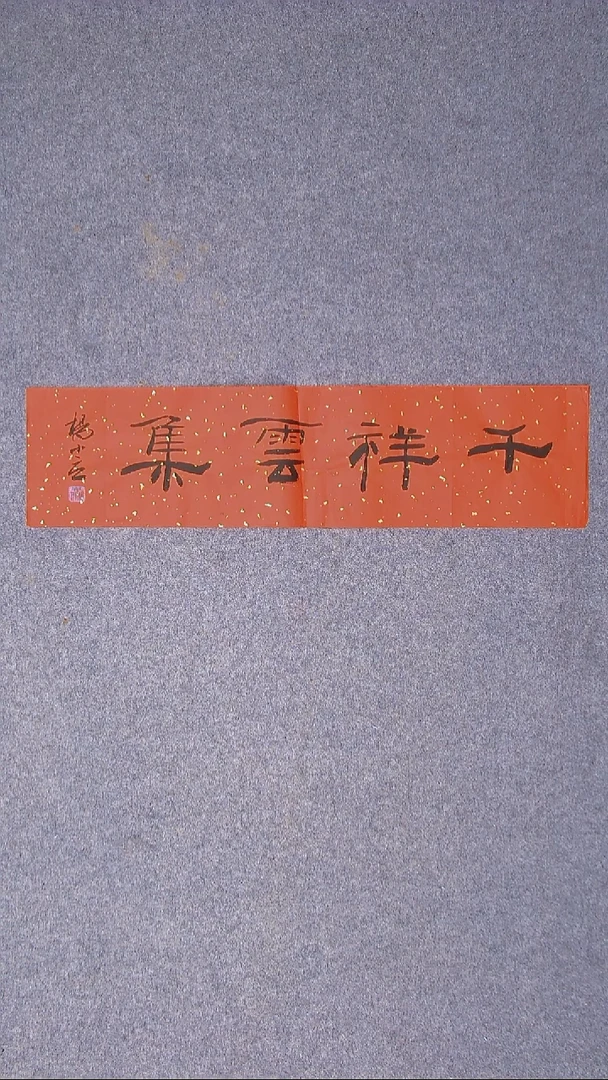 千祥雲集